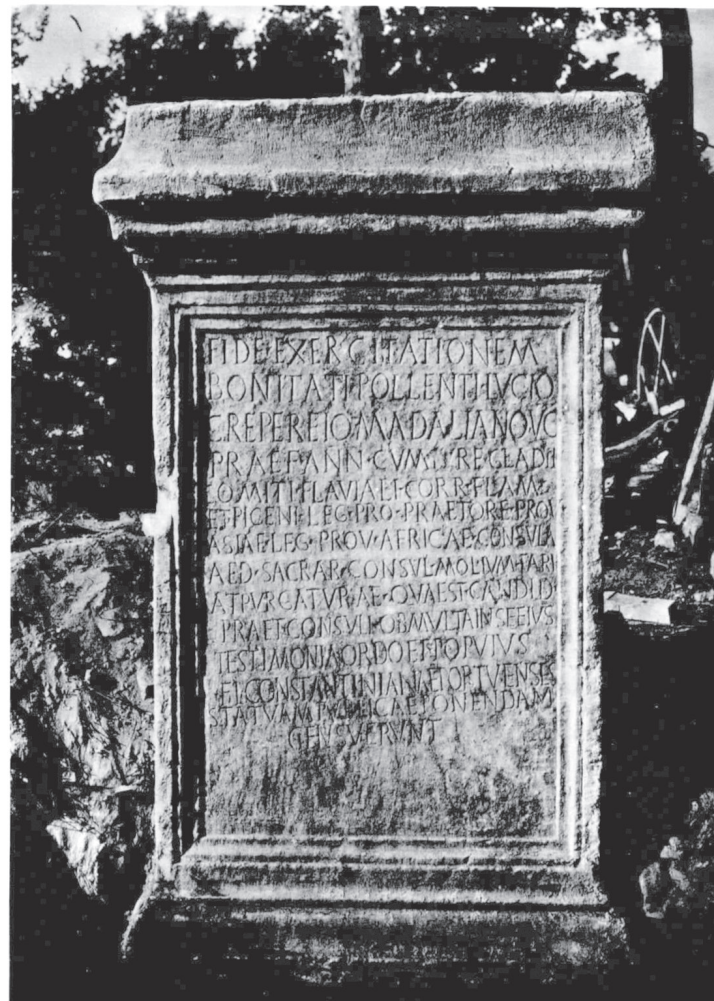 FIDE·EXERCITATIONEM
BONITATI·POLLENTI·LVCIO
CREPEREIO·MADALIANO·VC
PRAEF·ANN·CVM·IVRE·GLADII
COMITI·FLAVIALI·CORR·FLAM
ET·PICENI·LEG·PRO·PRAETORE·PROV
ASIAE·LEG·PROV·AFRICAE·CONSVLA
AED·SACRAR·CONSVL·MOLIVM·FARI
AT·PVRGATVRAE·QVAEST·CANDID
PRAET·CONSVLI·OB·MVLTA·IN·SE·EIVS
TESTIMONIA·ORDO·ET·POPVLVS
FL·CONSTANTINIANAE·PORTVENSES
STATVAM·PVBLICAE·PONENDAM
CENSVERVNT